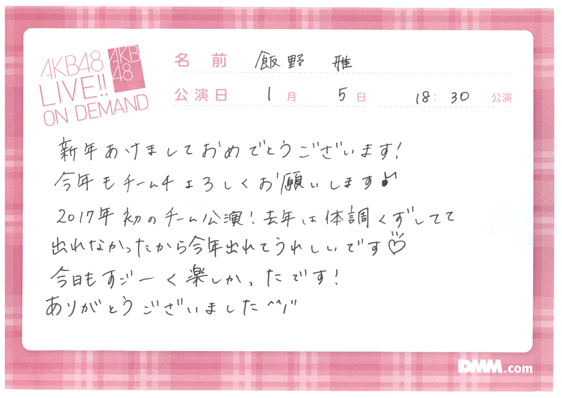 AKB48
LIVE!!
ON DEMAND
AKB
48
名前 飯野 雅
公演日 1月 5日 18:30 公演
新年あけましておめでとうございます!
今年もチーム4よろしくお願いします♪
2017年初のチーム公演!去年は体調くずしてて
出れなかったから今年出れてうれしいです♡
今日もすご一く楽しかったです!
ありがとうございました^^)/"
DMM.com